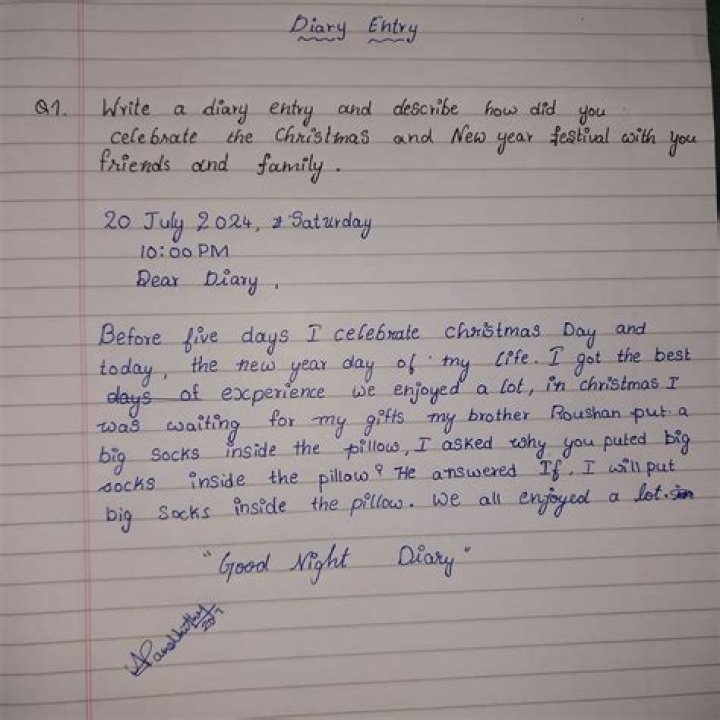 Diary Entry
Q1. Write a diary entry and describe how did you
celebrate the Christmas and New year festival with you
friends and family.
20 July 2024, Saturday
10:00 PM
Dear Diary,
Before five days I celebrate christmas Day and
today, the new year day of my life. I got the best
days of excperience we enjoyed a lot, in christmas I
was waiting for my gifts my brother Roushan put a
big socks inside the pillow, I asked why you puted big
socks inside the pillow? He answered If, I will put
big socks inside the pillow. We all enjoyed a lot.
"Good Night Diary"